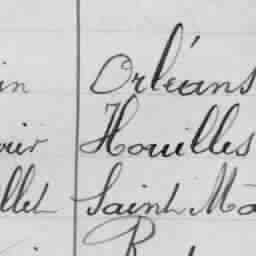 in Orléans
oir Houilles
llet Saint Ma